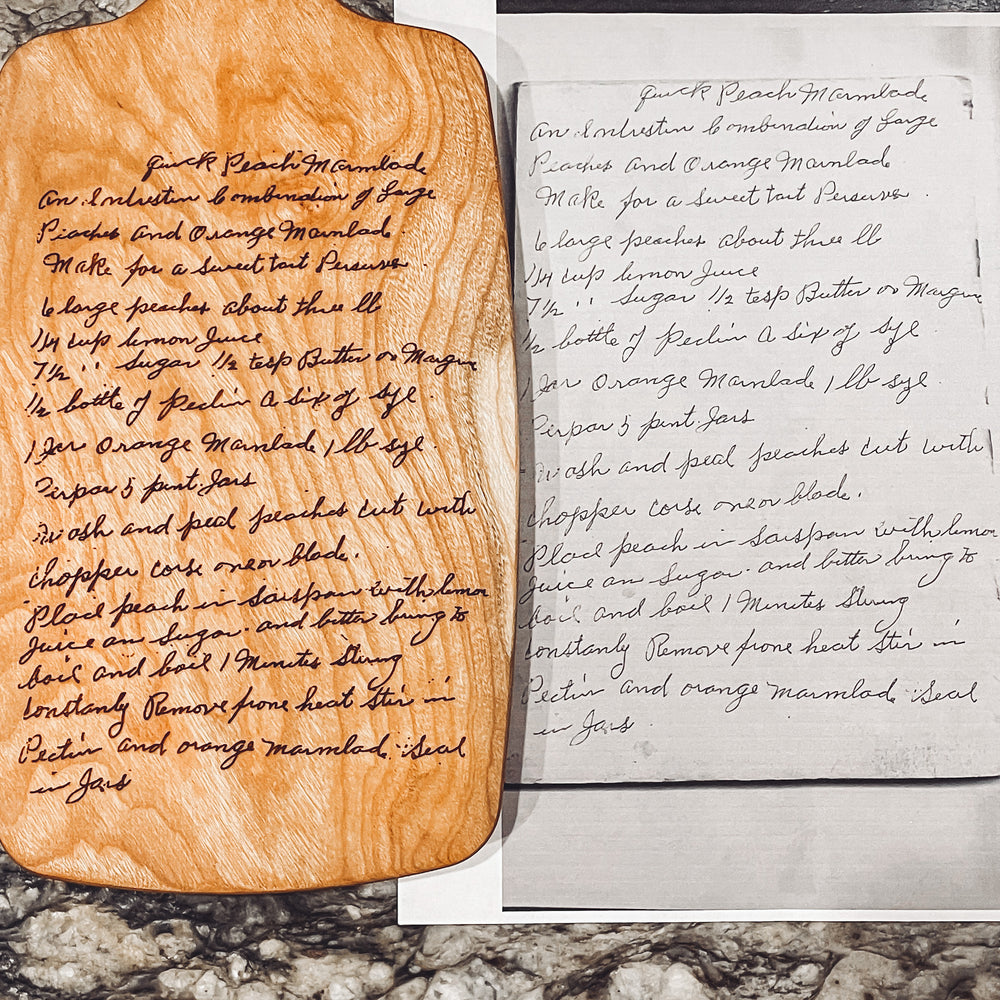 Quick Peach Marmlade
An Intrestin Combination of Large
Peaches and Orange Marmlade.
Make for a sweet tart Perserves.
6 large peaches about three lb
1/4 cup lemon Juice
7 1/2 '' Sugar 1/2 tesp Butter or Margine
1/2 bottle of Pectin A six oz sye
1 Jar Orange Marmlade 1 lb sye.
Perpar 5 pint Jars
Wash and peal peaches cut with
chopper corse one or blade.
Place peach in Saispan with lemon
Juice an Sugar. and bitter bring to
boil and boil 1 Minutes Stiring
Constanly Remove frone heat Stir in
Pectin and orange marmlad. Seal
in Jars
Quick Peach Marmlade
An Intrestin Combination of Large
Peaches and Orange Marmlade
Make for a sweet tart Perserves.
6 large peaches about three lb
1/4 cup lemon Juice
7 1/2 '' Sugar 1/2 tesp Butter or Margine
1/2 bottle of Pectin A six oz sye
1 Jar Orange Marmlade 1 lb sye.
Perpar 5 pint Jars
Wash and peal peaches cut with
chopper corse one or blade.
Place peach in Saispan with lemon
Juice an Sugar. and bitter bring to
boil and boil 1 Minutes Stiring
Constanly Remove frone heat Stir in
Pectin and orange marmlad. Seal
in Jars